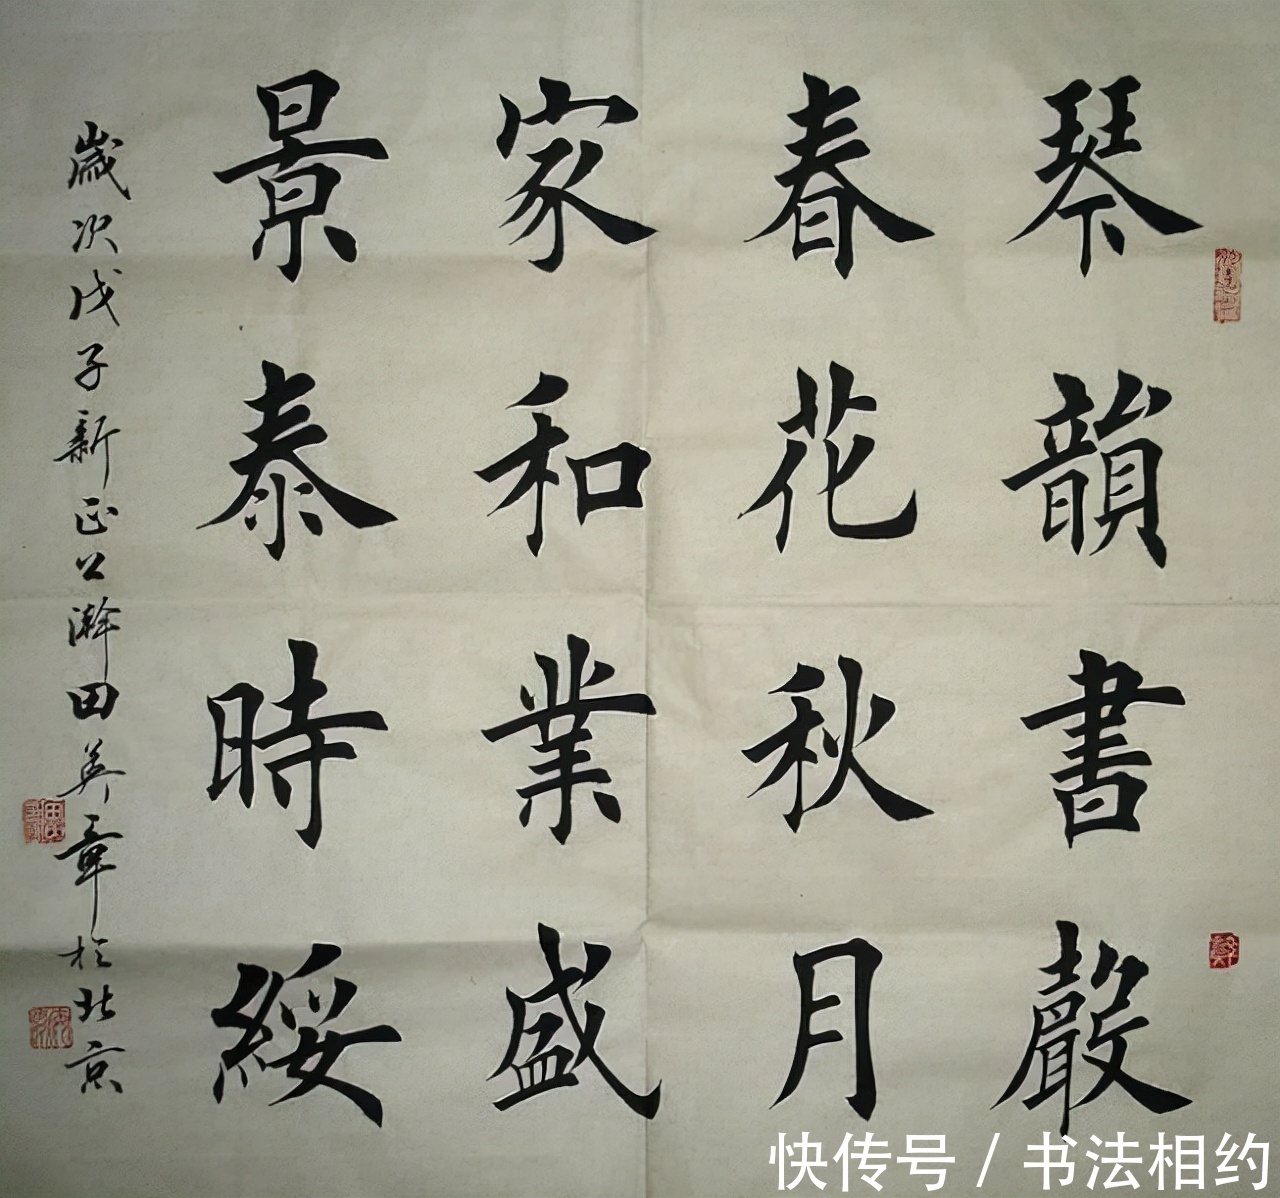 琴韻書聲
春花秋月
家和業盛
景泰時綏
歲次戊子新正公瀚田英章於北京
快传号/书法相约